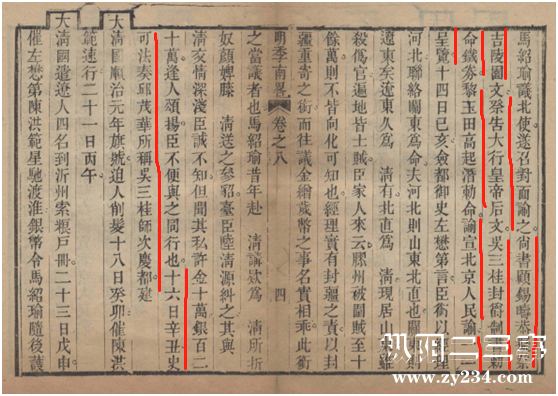 馬紹瑜議北使遂召對面諭之尚書顧錫疇恭進祭
吉陵園文祭告大行皇帝后文吳三桂封爵制書勅
命鐵券黎玉田高起潛勅命諭宣北京人民諭一
呈覽十四日己亥僉都御史左懋第言臣銜以經理
河北聯絡關東為命夫河北則山東北直也關東則
遼東矣遼東久為 清有北直為 清現居山東雖
殺偽官遍地皆土賊臣家人來云膠州被圍賊至十
餘萬則不皆向化可知也經理實有封疆之責以封
疆重寄之銜而往議金繒歲幣之事名實相乖此銜
明季南畧 卷之八 四
之當議者也馬紹瑜昔年赴 清講欵為 清所折
奴顏婢膝 清送之參貂臺臣陸清源糾之其與
清交情深淺臣誠不知但聞其私許金十萬銀百二
十萬逢人頌揚臣不便與之同行也十六日辛丑史
可法奏邱茂華所稱吳三桂師次慶都建
大清國順治元年旗號迫人削髮十八日癸卯催陳洪
範速行二十一日丙午
大清國遣遼人四名到沂州索糧戶冊二十三日戊申
催左懋第陳洪範星馳渡淮銀幣令馬紹瑜隨後護
枞阳二三事
www.zy234.com